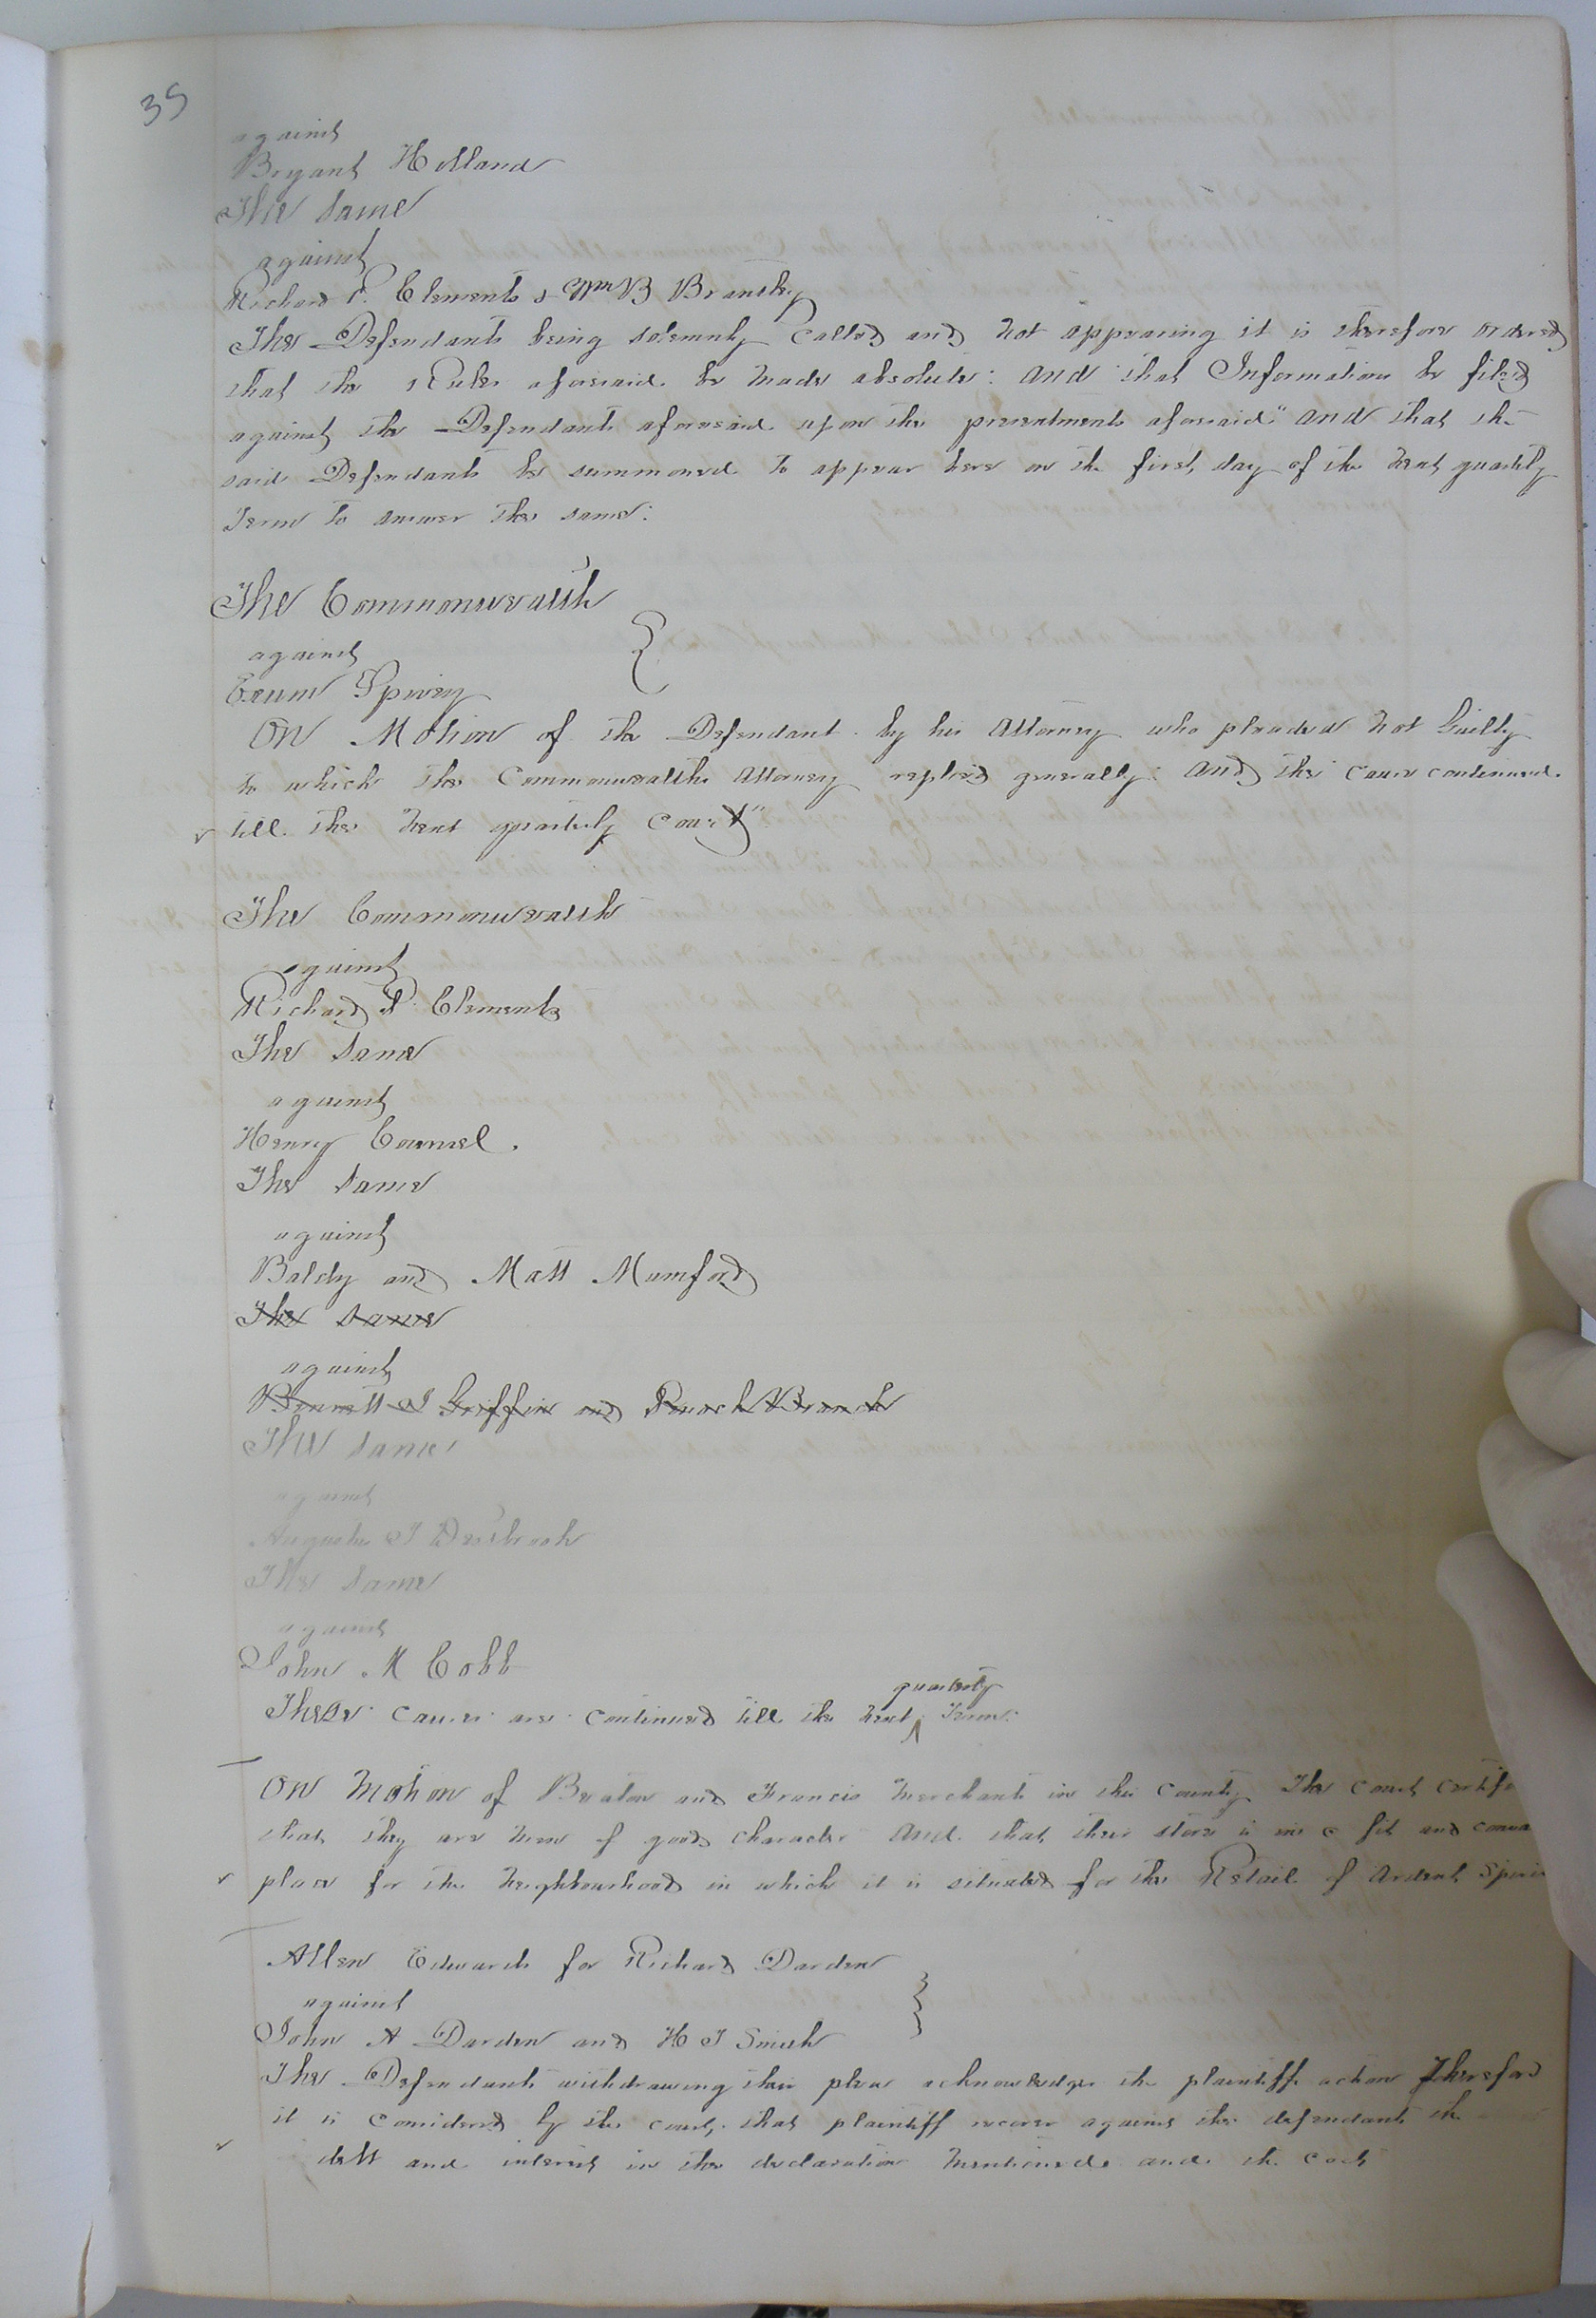 35
against
Bryant Holland
The Same
against
Richard P. Clements & Wm B Brantley
The Defendants being solemnly called and not appearing it is therefore ordered
that the Rules aforesaid be made absolute: and that Informations be filed
against the Defendants aforesaid upon the presentments aforesaid" and that the
said Defendants be summoned to appear here on the first day of the next quartely
Term to answer the same:
The Commonwealth
against
Exum Spivey
On Motion of the Defendant by his Attorney who pleaded not Guilty
to which the Commonwealths Attorney replied generally: and the cause continued
till the next quartely Court"
The Commonwealth
against
Richard P. Clements
The Same
against
Henry Council.
The Same
against
Baldy and Matt Mumford
The Same
against
Bennett J Griffin and Enoch Branch
The Same
against
The Same
against
John M Cobb
These causes are continued till the next quarterly Term:
On Motion of Beaton and Francis Merchants in this County The Court Certif
that they are men of good character and that their store is in a fit and conve
place for the neighbourhood in which it is situated for the Retail of Ardent Spiri
Allen Edwards for Richard Darden
against
John A Darden and H J Smith
The Defendants withdrawing their plea acknowledges the plaintiffs action Therefore
it is considered by the court, that plaintiff recover against the defendants the
debt and interest in the declaration mentioned and the costs